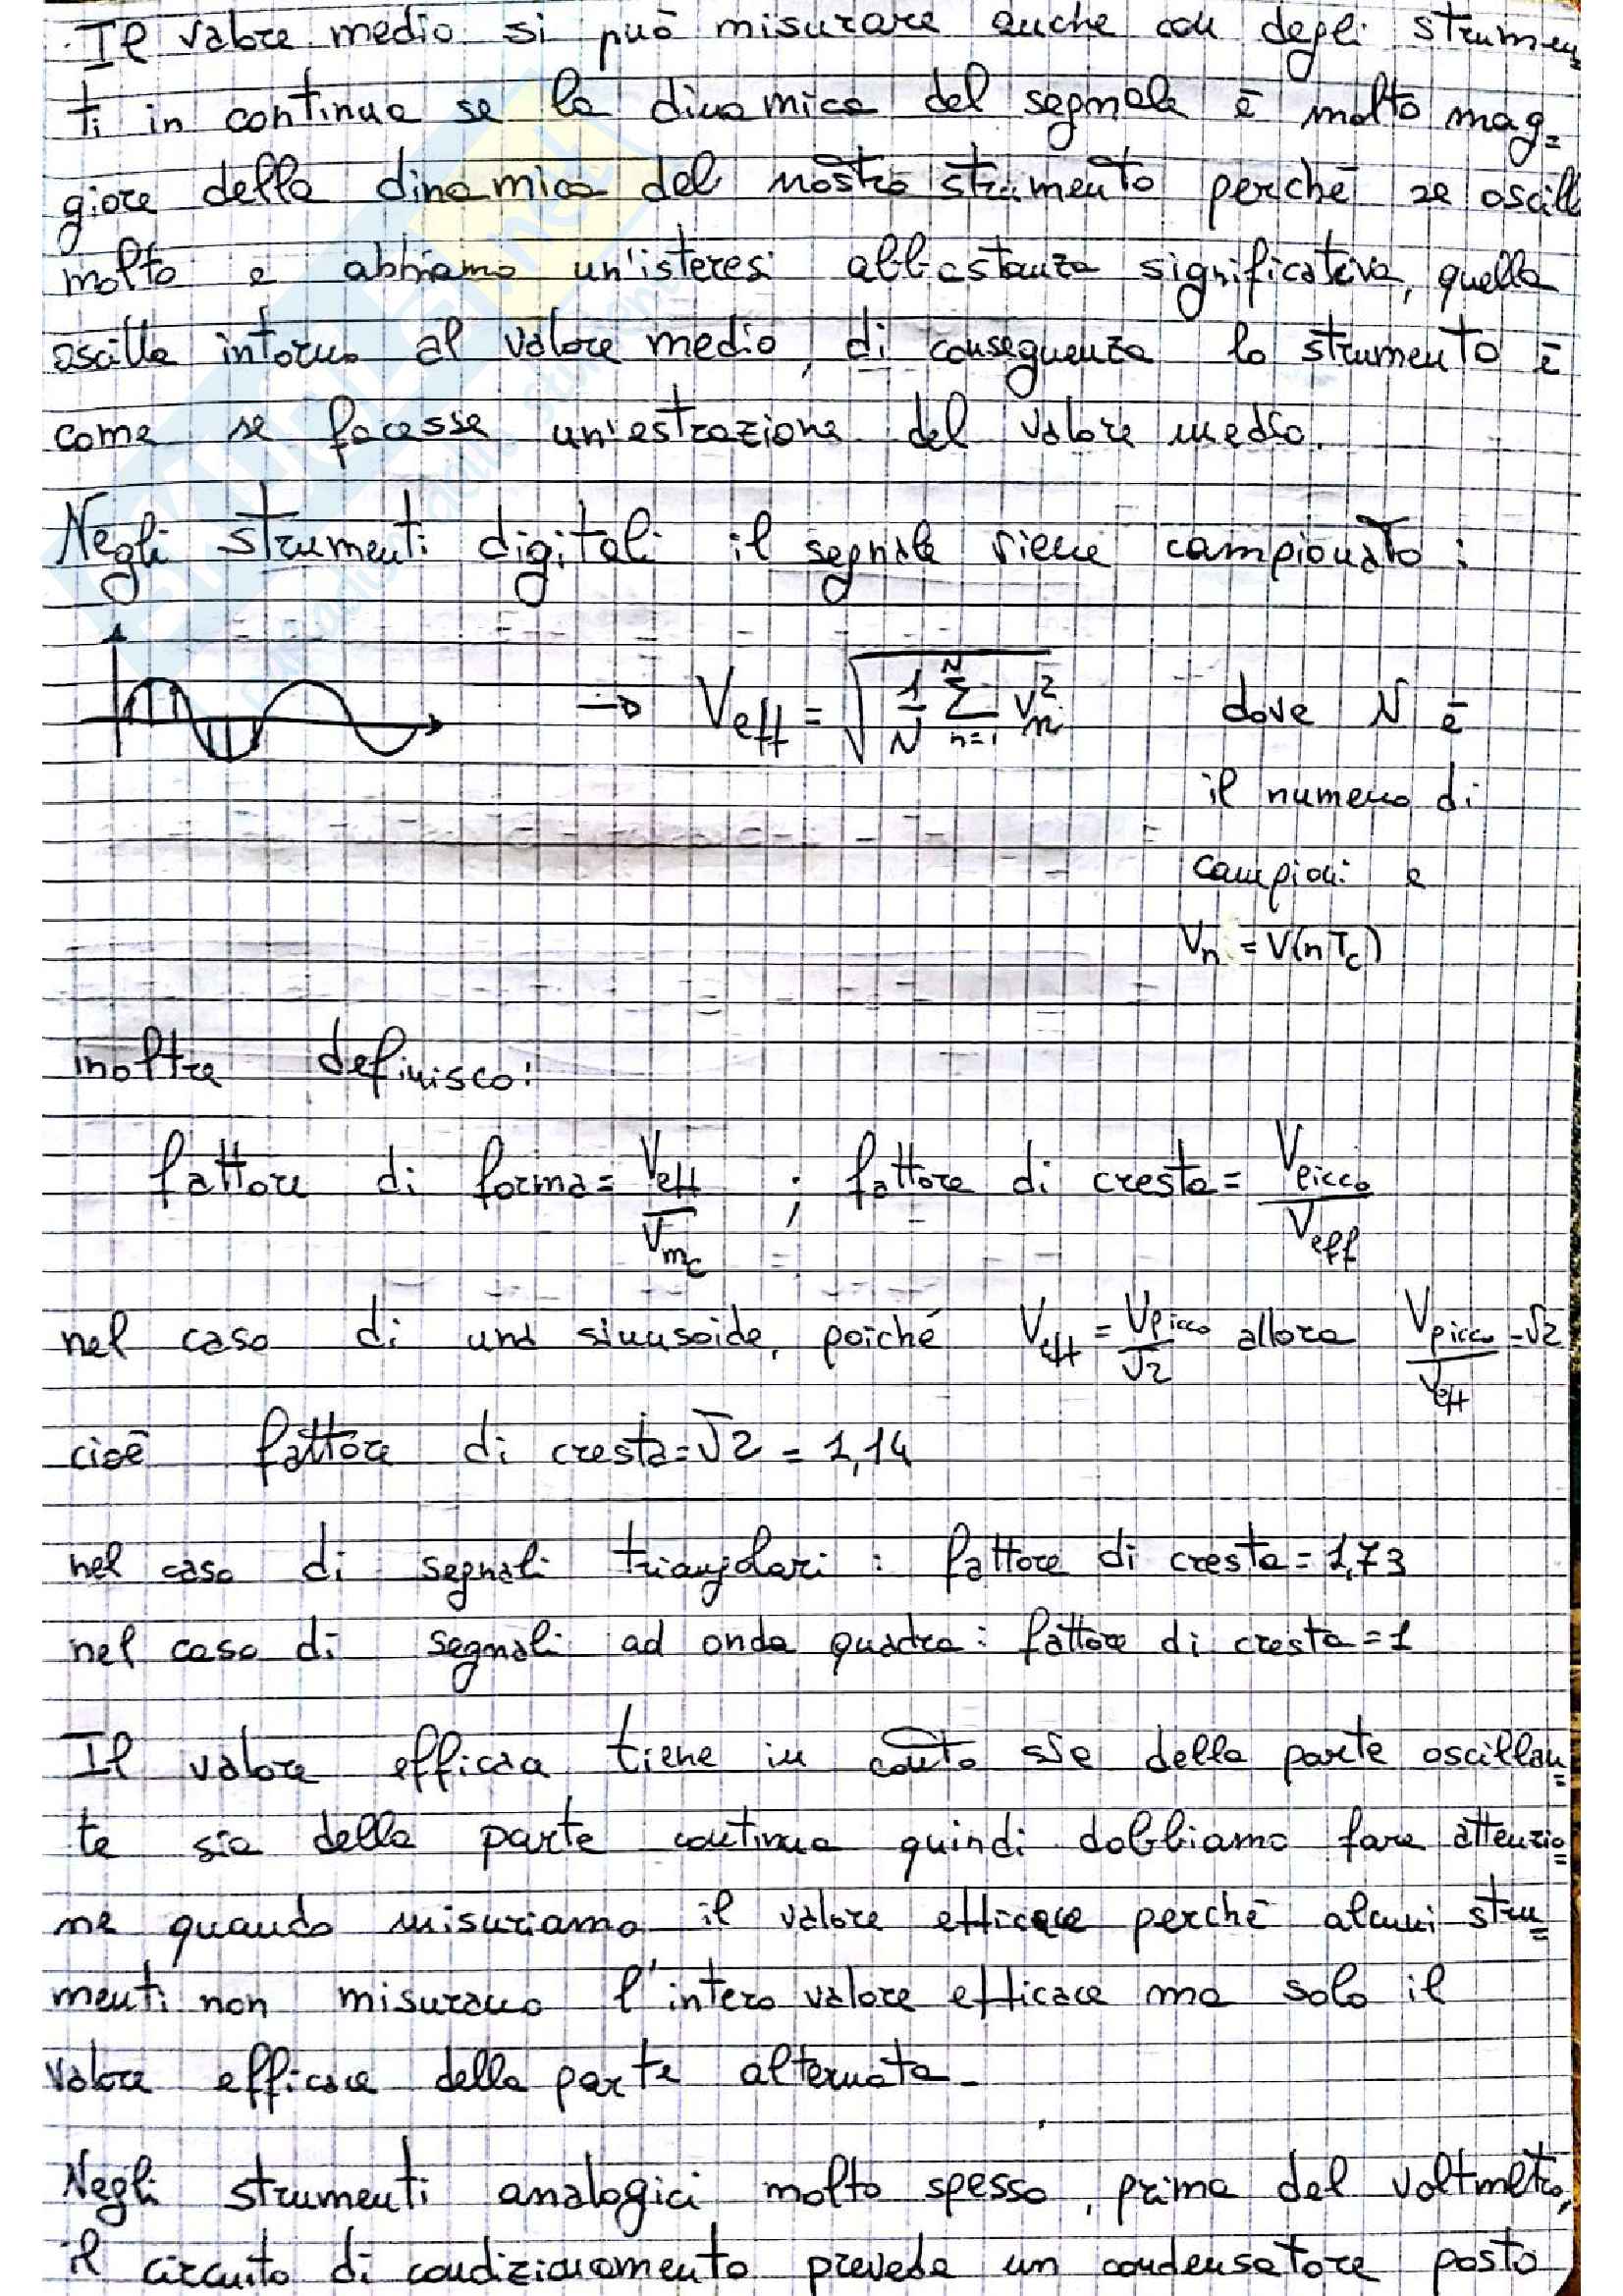 Il valore medio si può misurare anche con degli strumen=
ti in continua se la dinamica del segnale è molto mag=
giore della dinamica del nostro strumento perché se oscill
molto e abbiamo un'isteresi abbastanza significativa, quella
oscilla intorno al valore medio, di conseguenza lo strumento è
come se facesse un'estrazione del valore medio.
Negli strumenti digitali il segnale viene campionato:
→ Veff = √(1/N Σ_{n=1}^{N} v_n²) dove N è
il numero di
campioni e
Vn = V(nTc)
inoltre definisco:
fattore di forma = Veff/Vmc ; fattore di cresta = Vpicco/Veff
nel caso di una sinusoide, poiché Veff = Vpicco/√2 allora Vpicco/Veff = √2
cioè fattore di cresta = √2 = 1,14
nel caso di segnali triangolari : fattore di cresta = 1,73
nel caso di segnali ad onda quadra : fattore di cresta = 1
Il valore efficace tiene in conto sia della parte oscillan=
te sia della parte continua quindi dobbiamo fare attenzio=
ne quando misuriamo il valore efficace perché alcuni stru=
menti non misurano l'intero valore efficace ma solo il
valore efficace della parte alternata.
Negli strumenti analogici molto spesso, prima del voltmetro,
il circuito di condizionamento prevede un condensatore posto